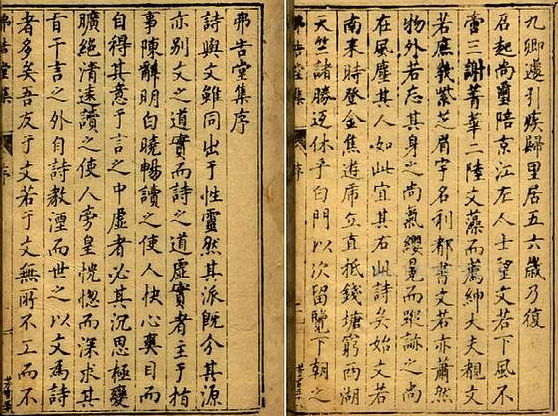 弗告堂集序
詩與文雖同出于性靈然其派既分其源
亦別文之道實而詩之道虛實者主于指
事陳辭明白曉暢讀之使人快心爽目而
自得其意于言之中虛者必其沉思極變
曠絕清遠讀之使人旁皇恍惚而深求其
旨于言之外自詩教湮而世之以文為詩
者多矣吾友于文若于文無所不工而不
弗告堂集 序 一
九卿遽引疾歸里居五六歲乃復
召起尚璽陪京江左人士望文若下風不
啻三謝菁華二陸文藻而薦紳大夫覩文
若庶幾紫芝眉宇名利都盡文若亦蕭然
物外若忘其身之尚氣纓冕而蹤跡之尚
在風塵其人如此宜其有此詩矣始文若
南來時登金焦遊虎丘直抵錢塘窮西湖
天竺諸勝迄休乎白門以次留覽下朝之
弗告堂集 序